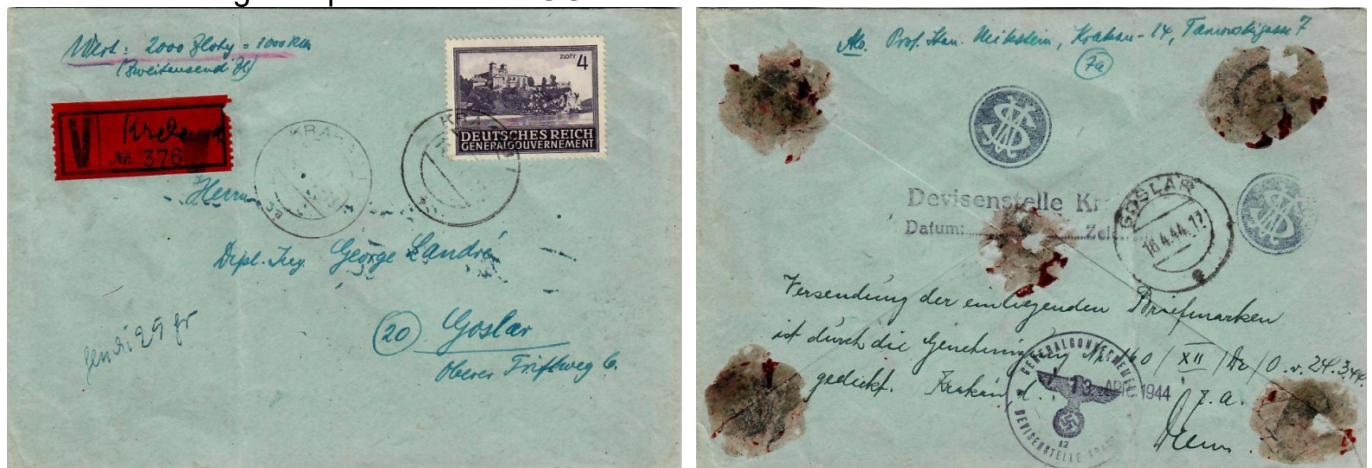 Wert: 2000 Zloty = 1000 RM
(Zweitausend Zl)
ZLOTY 4
DEUTSCHES REICH
GENERALGOUVERNEMENT
V
Nr. 376
Herrn
Dipl. Ing. George Landré
(20) Goslar
Oberer Triftweg 6.
Abs. Prof. Stan. Mikstein, Krakau-14,
7a
Devisenstelle Kr
Datum:
GOSLAR
16.4.44.17
e
Versendung der einliegenden Briefmarken
ist durch die Genehmigung Nr. 160/XII/
v. 24.3.44.
gedeckt. Krakau d. 13. APR. 1944
GENERALGOUVERNEMENT
DEVISENSTELLE
12